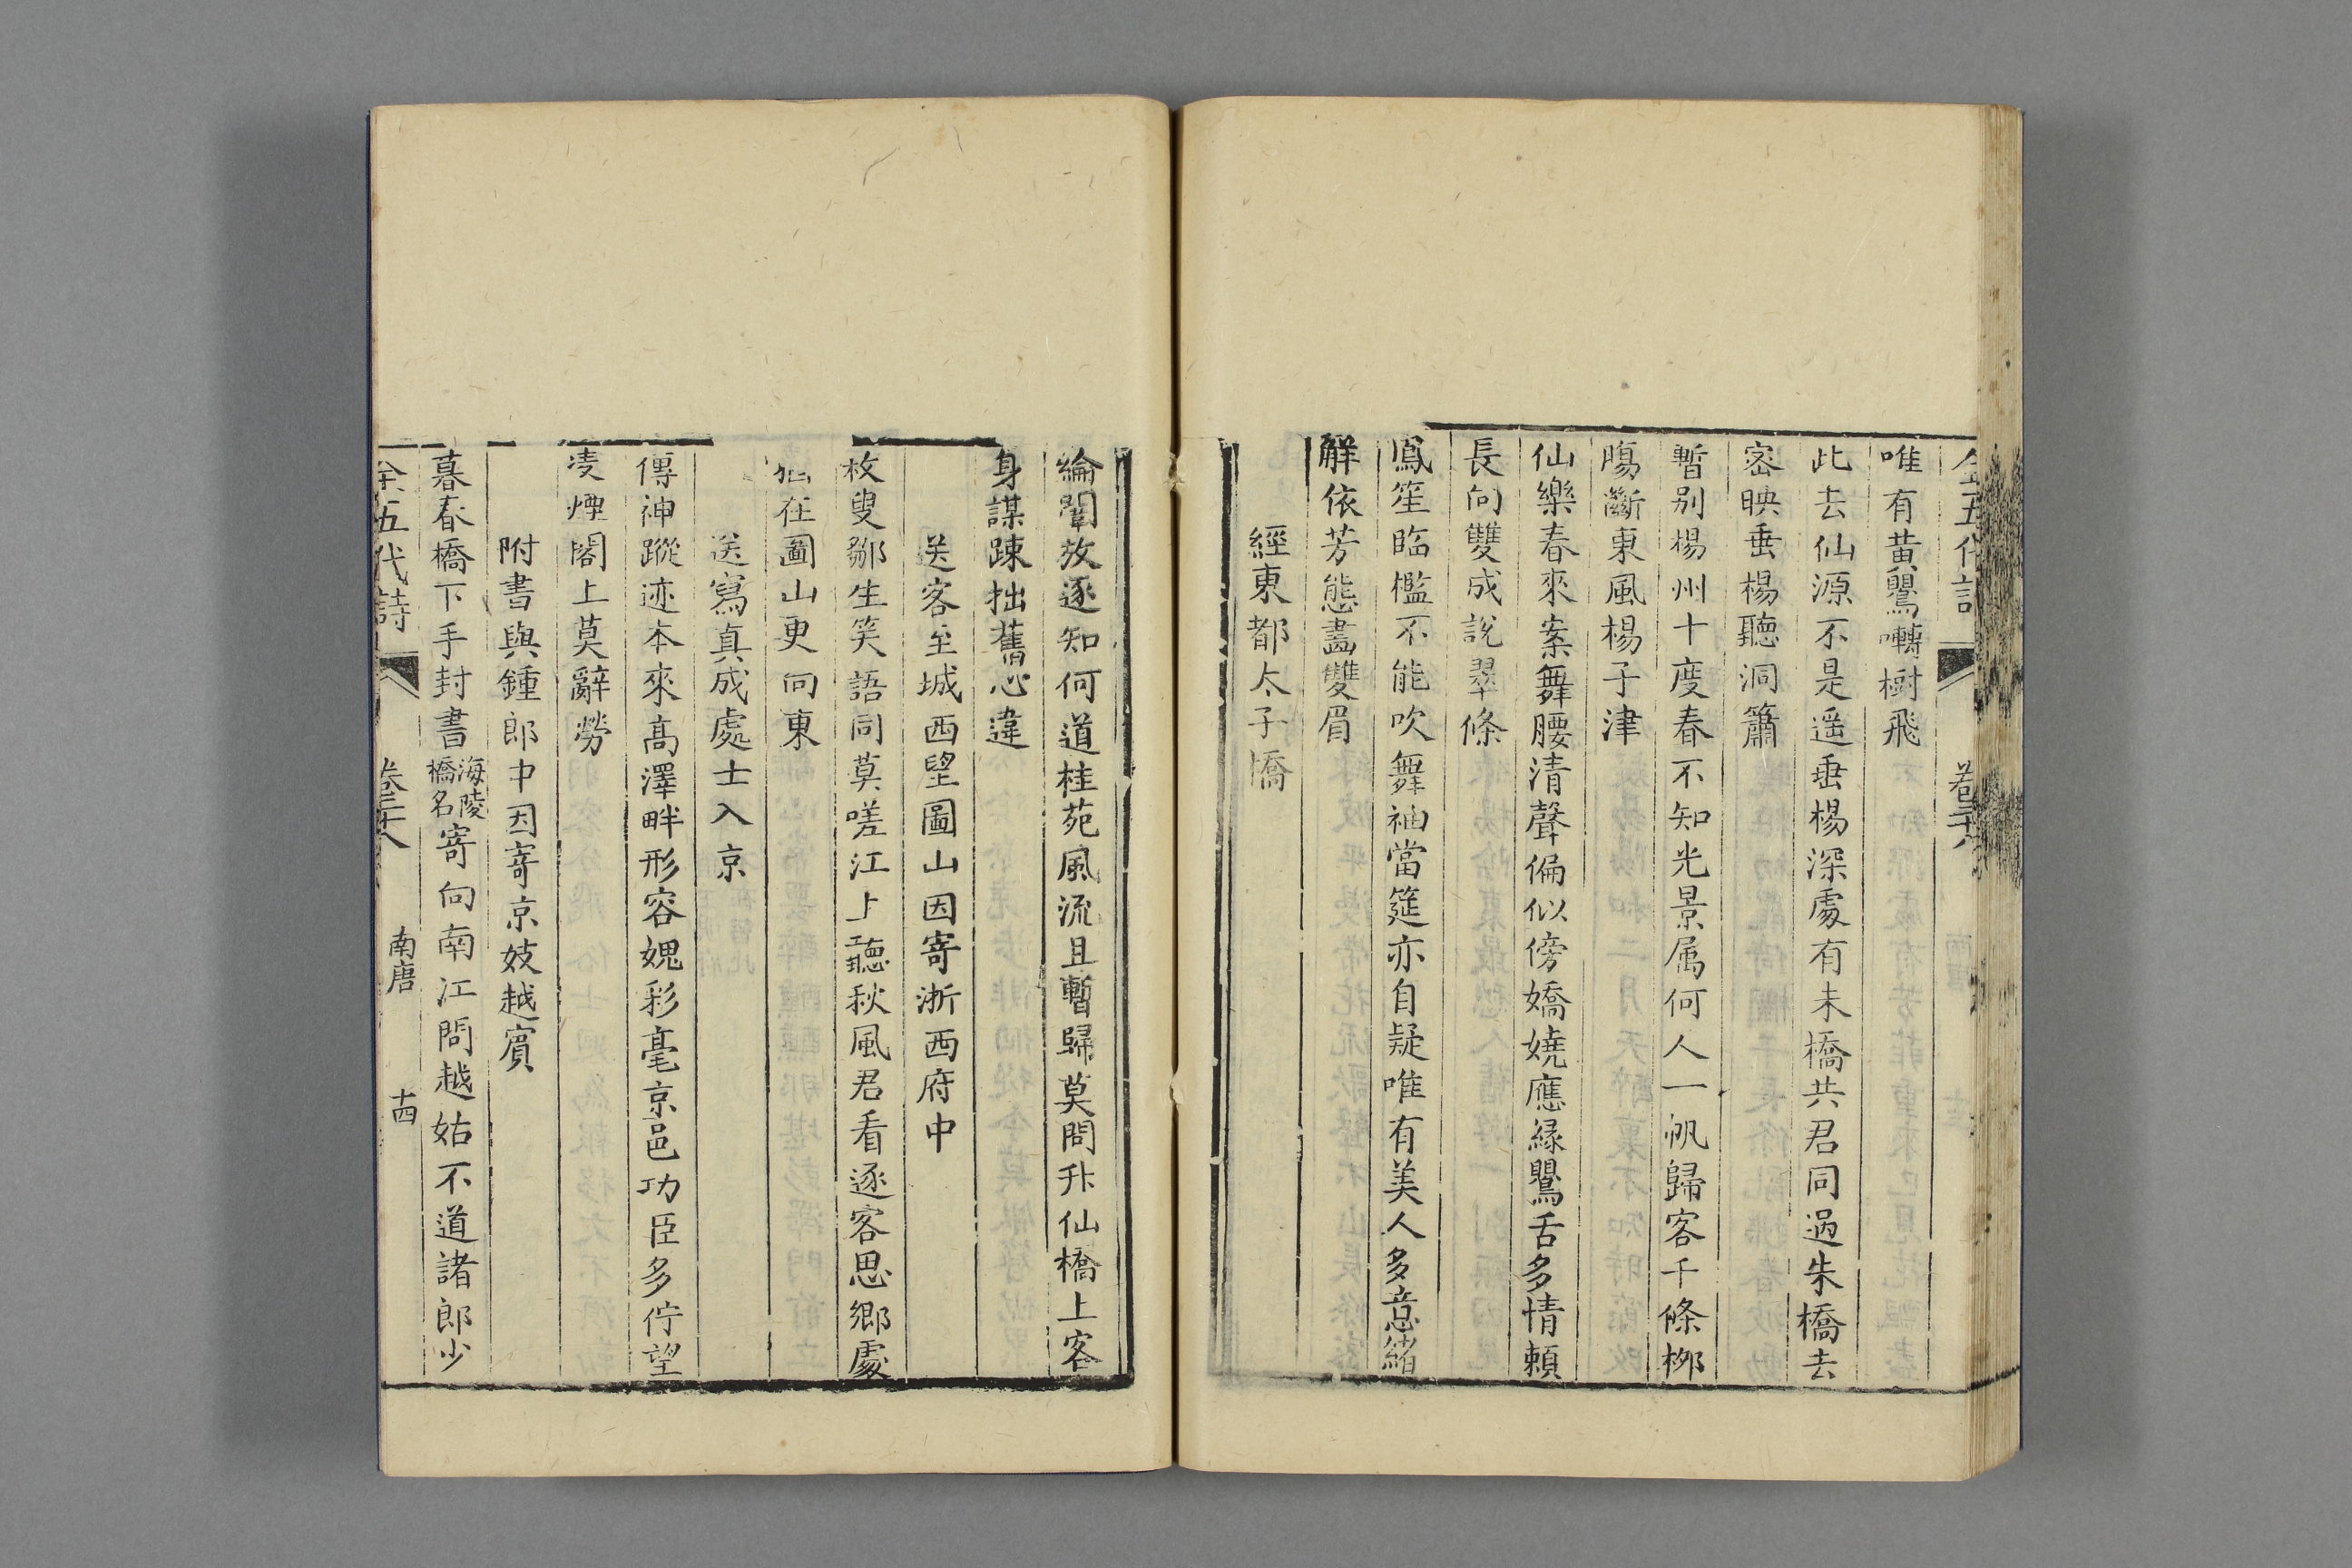 全五代詩 卷三十八
唯有黃鸎囀樹飛
此去仙源不是遥垂楊深處有未橋共君同過朱橋去
密映垂楊聽洞簫
暫别楊州十度春不知光景属何人一帆歸客千條桺
膓斷東風楊子津
仙樂春來案舞腰清聲偏似傍嬌嬈應緣鸎舌多情頼
長向雙成說翠條
鳳笙臨檻不能吹舞袖當筵亦自疑唯有美人多意緒
解依芳態畵雙眉
經東都太子橋
綸闈放逐知何道桂苑風流且暫歸莫問升仙橋上客
身謀踈拙舊心違
送客至城西望圖山因寄浙西府中
枚叟鄒生笑語同莫嗟江上聽秋風君看逐客思鄉處
在圖山更向東
送寫真成處士入京
傳神蹤迹本來高澤畔形容媿彩毫京邑功臣多佇望
凌煙閣上莫辭勞
附書與鍾郎中因寄京妓越賔
暮春橋下手封書海陵橋名寄向南江問越姑不道諸郎少
全五代詩 卷三十八 南唐 十四